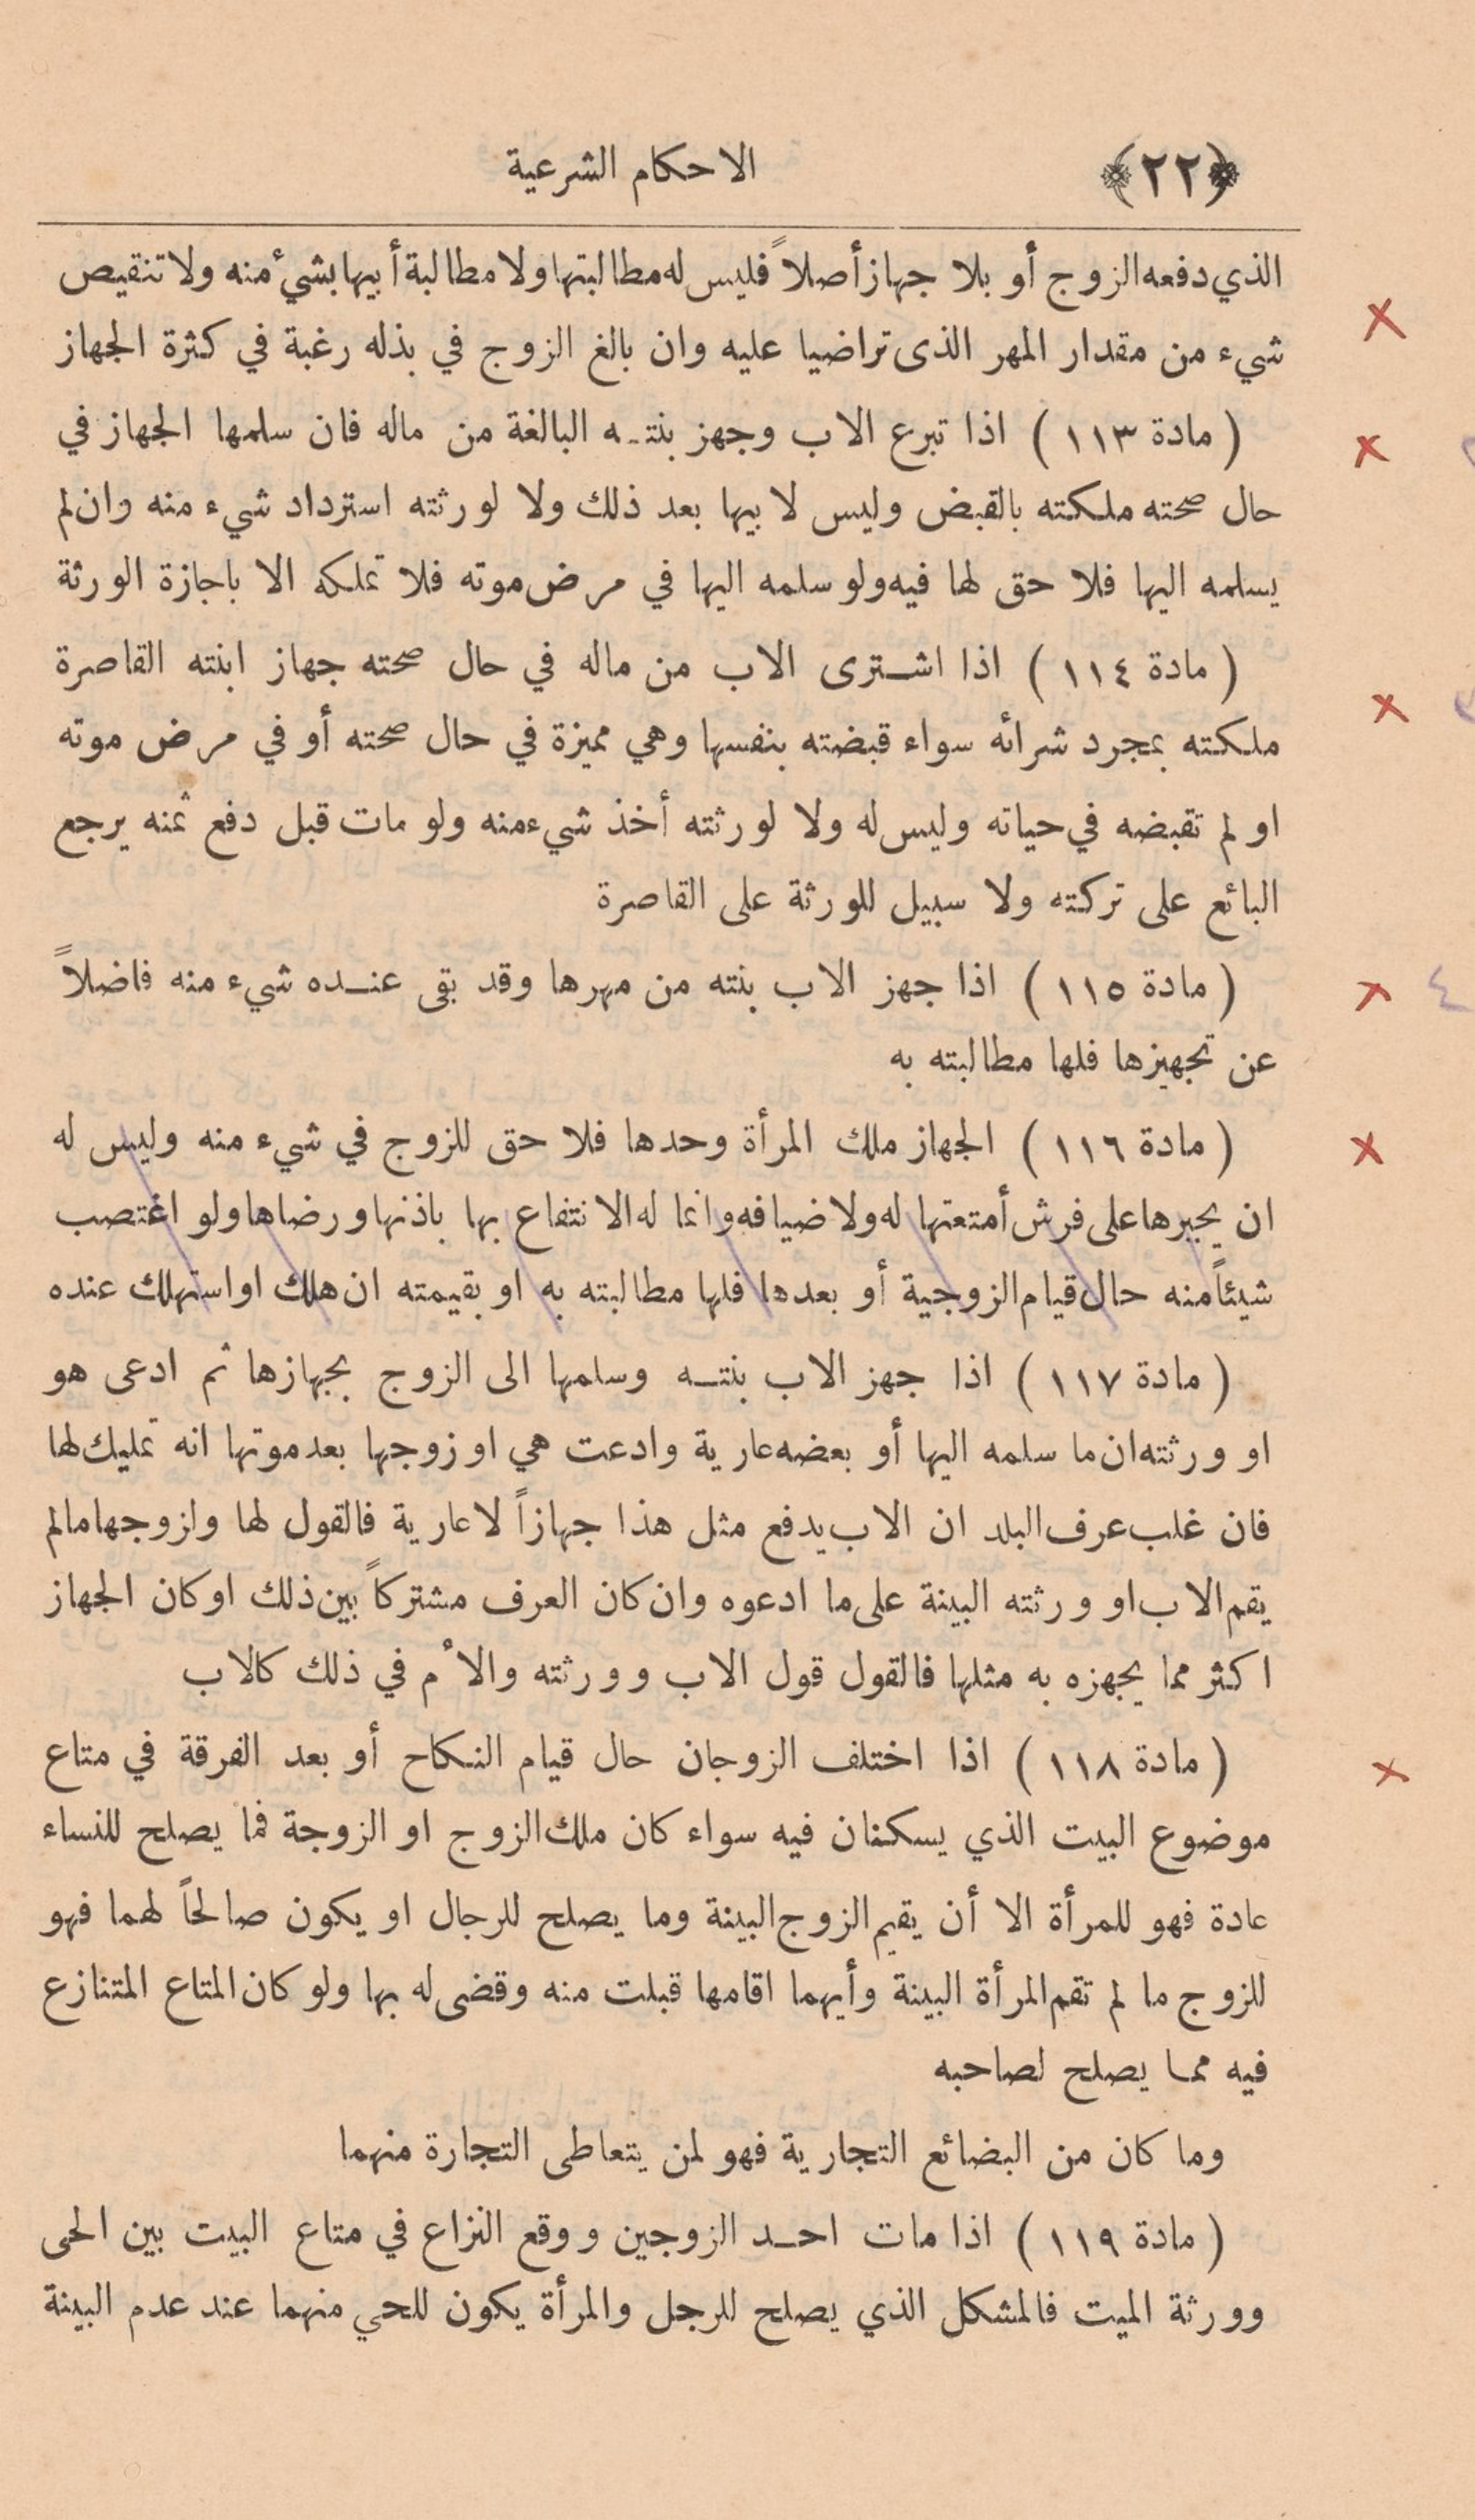 ﴿٢٢﴾ الاحكام الشرعية
الذي دفعه الزوج أو بلا جهاز أصلاً فليس له مطالبتها ولا مطالبة أبيها بشيء منه ولا تنقيص
شيء من مقدار المهر الذى تراضيا عليه وان بالغ الزوج في بذله رغبة في كثرة الجهاز
( مادة ١١٣ ) اذا تبرع الاب وجهز بنته البالغة من ماله فان سلمها الجهاز في
حال صحته ملكته بالقبض وليس لابيها بعد ذلك ولا لورثته استرداد شيء منه وان لم
يسلمه اليها فلا حق لها فيه ولو سلمه اليها في مرض موته فلا تملكه الا باجازة الورثة
( مادة ١١٤ ) اذا اشترى الاب من ماله في حال صحته جهاز ابنته القاصرة
ملكته بمجرد شرائه سواء قبضته بنفسها وهي مميزة في حال صحته أو في مرض موته
او لم تقبضه في حياته وليس له ولا لورثته أخذ شيء منه ولو مات قبل دفع ثمنه يرجع
البائع على تركته ولا سبيل للورثة على القاصرة
( مادة ١١٥ ) اذا جهز الاب بنته من مهرها وقد بقى عنده شيء منه فاضلاً
٤
عن تجهيزها فلها مطالبته به
( مادة ١١٦ ) الجهاز ملك المرأة وحدها فلا حق للزوج في شيء منه وليس له
ان يجبرها على فرش أمتعتها له ولا ضيافه وانما له الانتفاع بها باذنها ورضاها ولو اغتصب
شيئاً منه حال قيام الزوجية أو بعدها فلها مطالبته به او بقيمته ان هلك او استهلك عنده
( مادة ١١٧ ) اذا جهز الاب بنته وسلمها الى الزوج بجهازها ثم ادعى هو
او ورثته ان ما سلمه اليها أو بعضه عارية وادعت هي او زوجها بعد موتها انه تمليك لها
فان غلب عرف البلد ان الاب يدفع مثل هذا جهازاً لا عارية فالقول لها ولزوجها مالم
يقم الاب او ورثته البينة على ما ادعوه وان كان العرف مشتركاً بين ذلك او كان الجهاز
اكثر مما يجهزه به مثلها فالقول قول الاب وورثته والأم في ذلك كالاب
( مادة ١١٨ ) اذا اختلف الزوجان حال قيام النكاح أو بعد الفرقة في متاع
موضوع البيت الذي يسكنان فيه سواء كان ملك الزوج او الزوجة فما يصلح للنساء
عادة فهو للمرأة الا أن يقيم الزوج البينة وما يصلح للرجال او يكون صالحاً لهما فهو
للزوج ما لم تقم المرأة البينة وأيهما اقامها قبلت منه وقضى له بها ولو كان المتاع المتنازع
فيه مما يصلح لصاحبه
وما كان من البضائع التجارية فهو لمن يتعاطى التجارة منهما
( مادة ١١٩ ) اذا مات احد الزوجين ووقع النزاع في متاع البيت بين الحى
وورثة الميت فالمشكل الذي يصلح للرجل والمرأة يكون للحي منهما عند عدم البينة